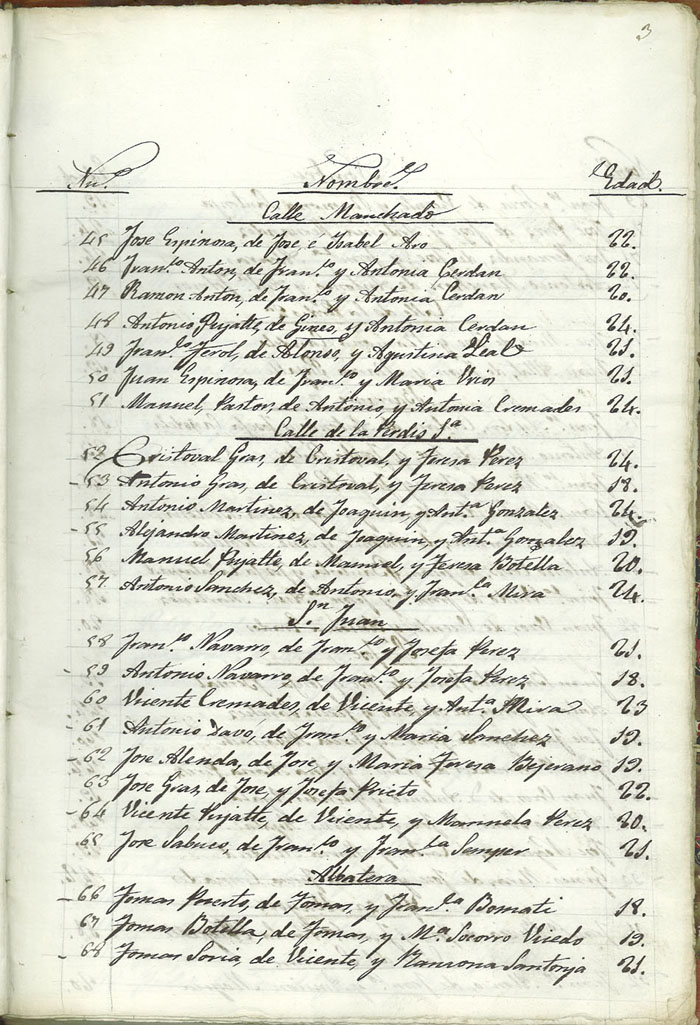 3
Nu.º Nombre. Edad.
Calle Manchado
45 Jose Espinosa, de Jose e Isabel Aro 22.
46 Fran.co Anton, de Fran.co y Antonia Cerdan 22.
47 Ramon Anton, de Fran.co y Antonia Cerdan 20.
48 Antonio Pujalte, de Gines, y Antonia Cerdan 24.
49 Fran.co Ferol, de Alonso, y Agustina Leal 21.
50 Juan Espinosa, de Fran.co y Maria 21.
51 Manuel Pastor, de Antonio, y Antonia Cremades 24.
Calle de la Perdis 1.ª
52 Cristoval Gras, de Cristoval, y Teresa Perez 24.
53 Antonio Gras, de Cristoval, y Teresa Perez 18.
54 Antonio Martinez, de Joaquin, y Ant.ª Gonzalez 24.
55 Alejandro Martinez, de Joaquin, y Ant.ª Gonzalez 19.
56 Manuel Pujalte, de Manuel, y Teresa Botella 20.
57 Antonio Sanchez, de Antonio, y Fran.ca Mira 24.
S.n Juan
58 Fran.co Navarro, de Fran.co y Josefa Perez 21.
59 Antonio Navarro, de Fran.co y Josefa Perez 18.
60 Vicente Cremades, de Vicente, y Ant.ª Mira 23
61 Antonio Davó, de Fran.co y Maria Sanchez 19.
62 Jose Alenda, de Jose, y Maria Teresa Bejerano 19.
63 Jose Gras, de Jose, y Josefa Prieto 22.
64 Vicente Pujalte, de Vicente, y Manuela Perez 20.
65 Jose Sabuco, de Fran.co y Fran.ca Semper 21.
Albatera
66 Tomas Puerto, de Tomas, y Fran.ca Bernati 18.
67 Tomas Botella, de Tomas, y M.ª Socorro 19.
68 Tomas Soria, de Vicente, y Ramona Santonja 21.